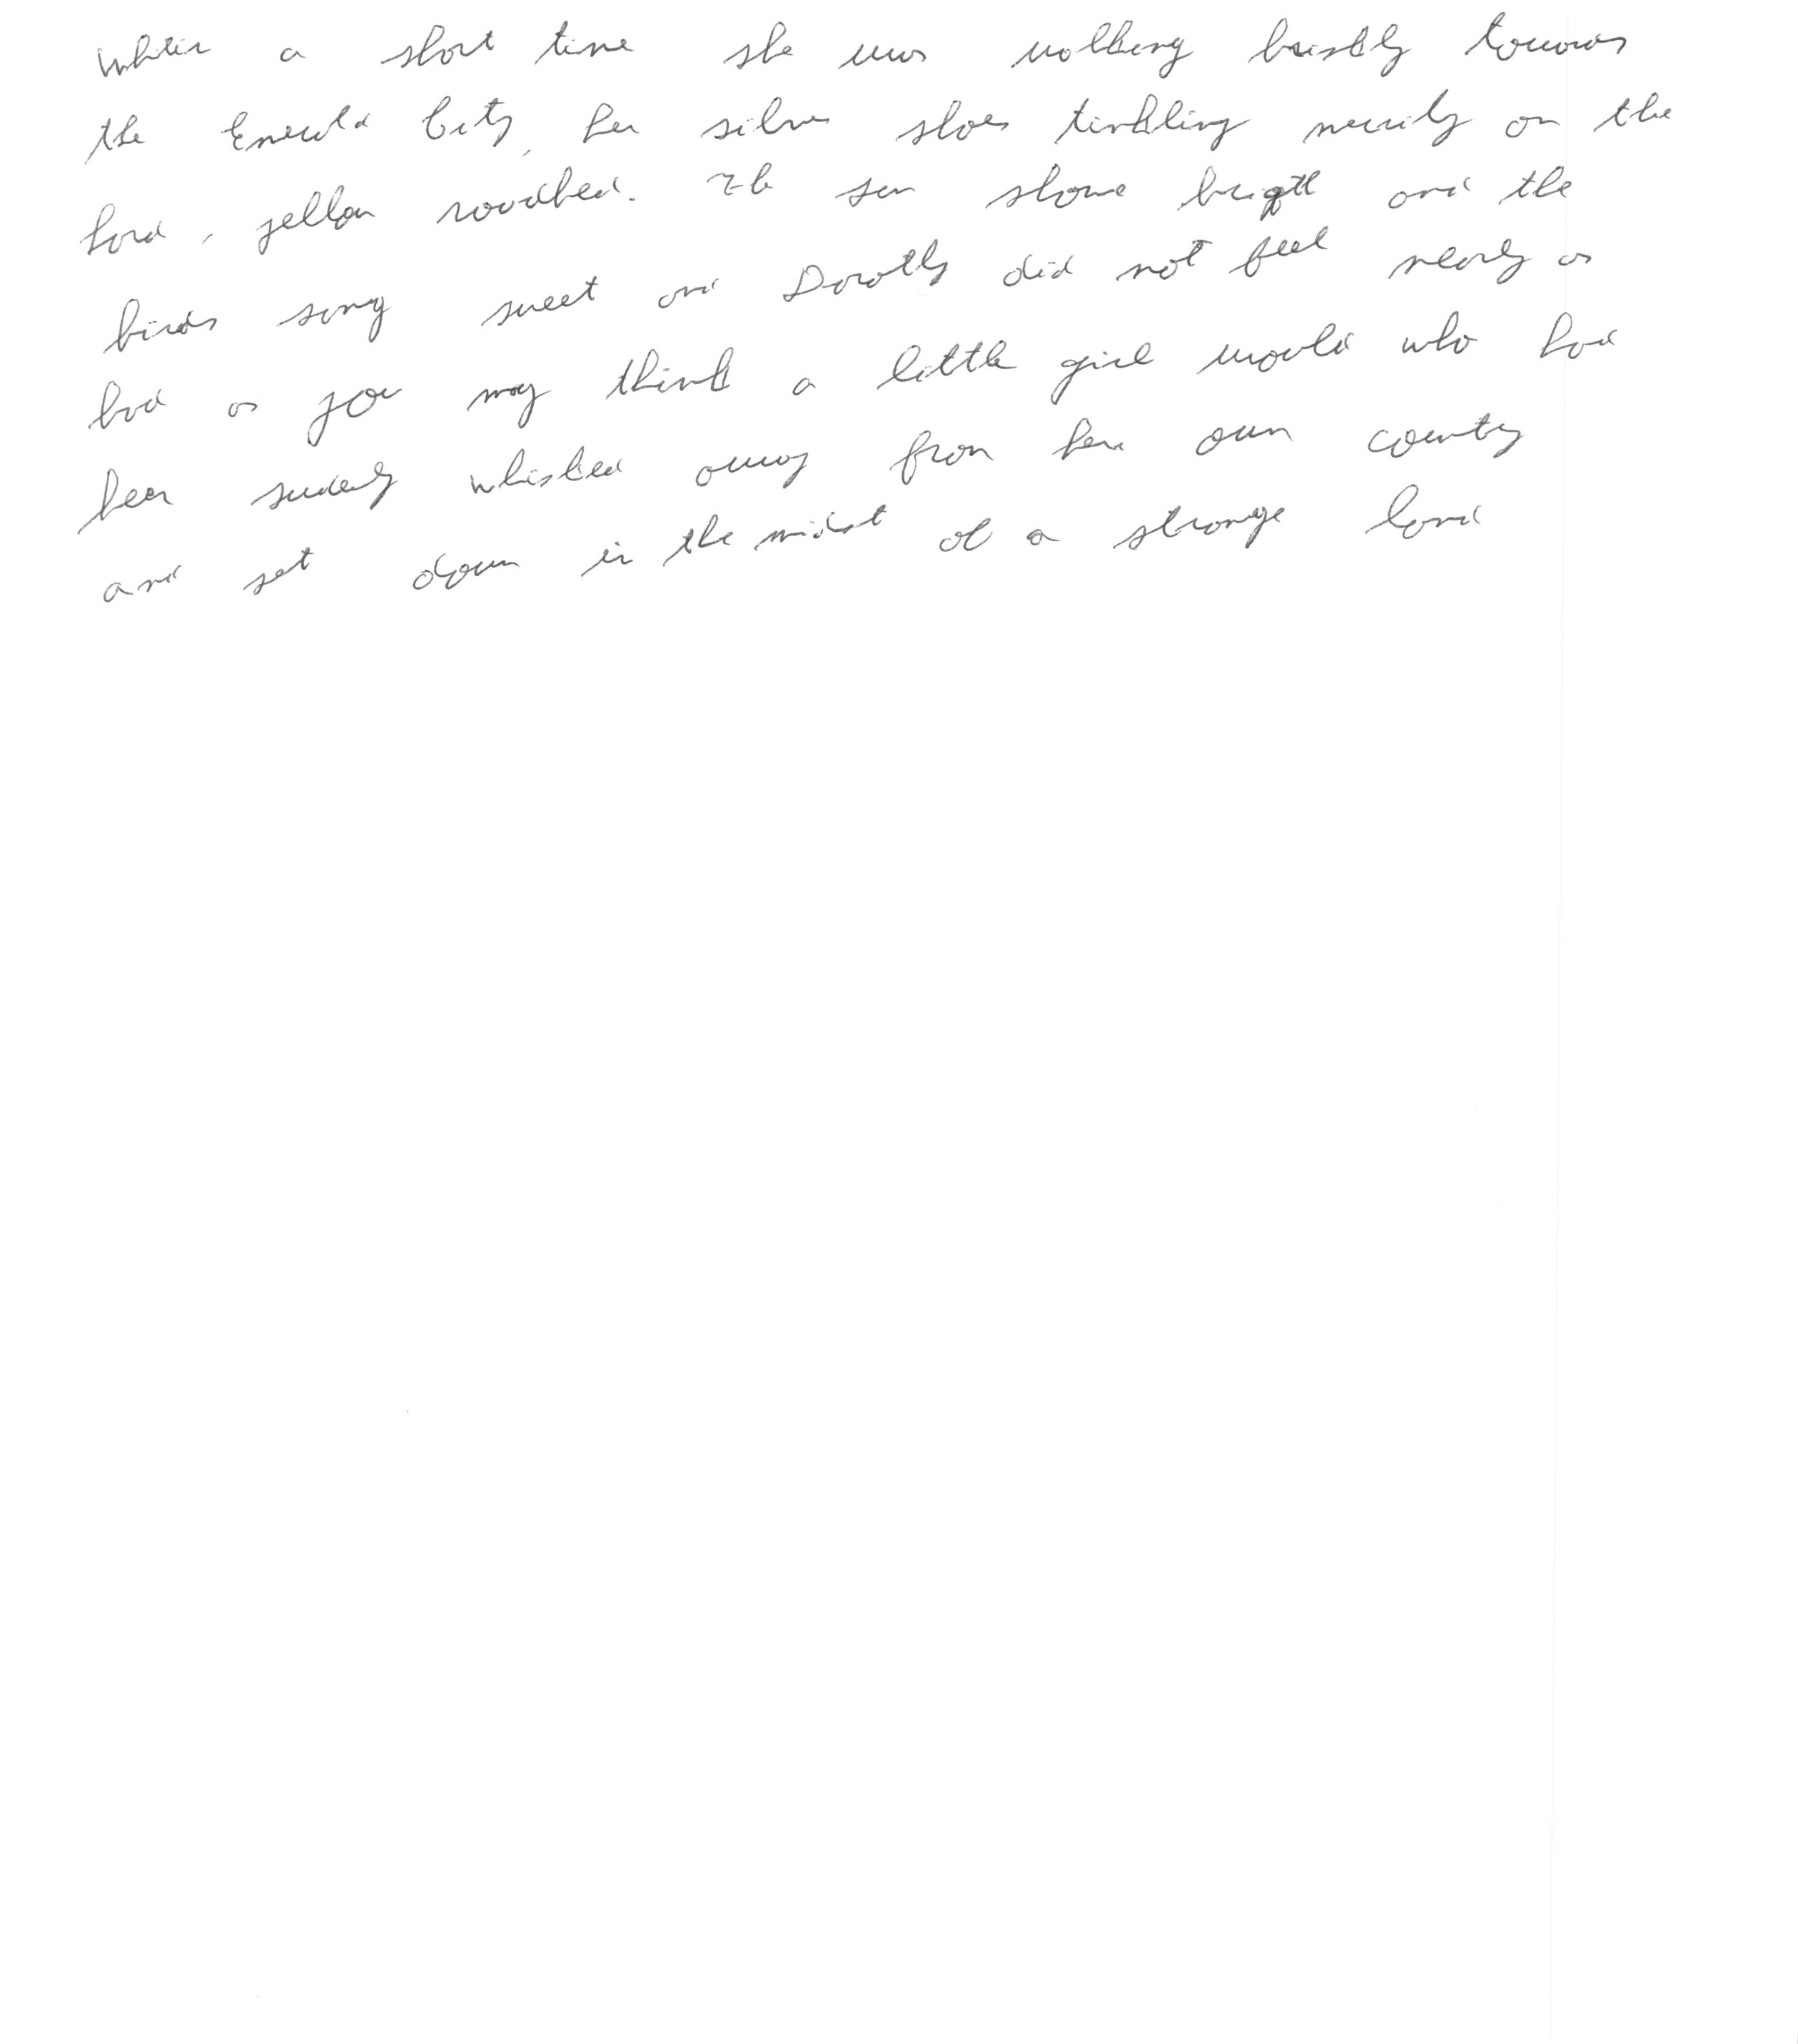 Within a short time she was walking briskly towards
the Emerald City, her silver shoes tinkling merrily on the
hard, yellow roadbed. The sun shone bright and the
birds sang sweet and Dorothy did not feel nearly as
bad as you may think a little girl would who had
been suddenly whisked away from her own country
and set down in the midst of a strange land